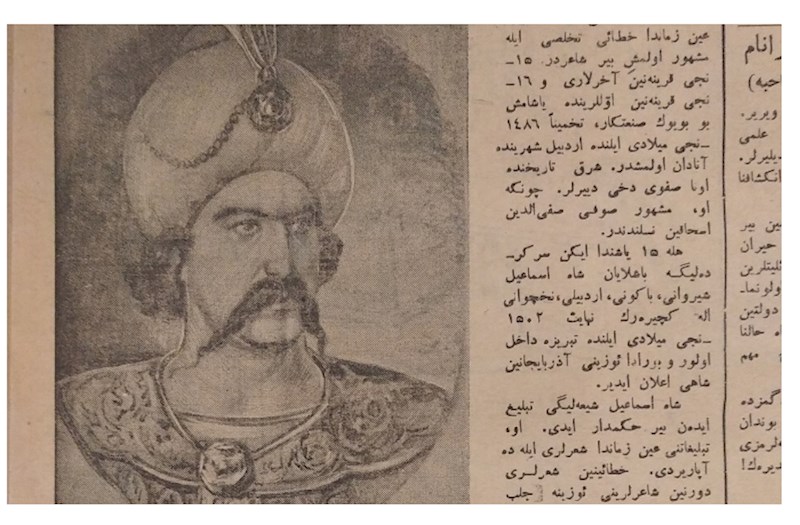 عین زماندا خطائی تخلصی ایله
مشهور اولمش بیر شاعردر. ١٥ـ
نجی قرینه‌نین آخرلاری و ١٦ـ
نجی قرینه‌نین اوّللرینده یاشامش
بو بویوك صنعتكار، تخمیناً ١٤٨٦
ـنجی میلادی ایلنده اردبیل شهرینده
آنادان اولمشدر. شرق تاریخنده
اونا صفوی دخی دییرلر. چونكه
او، مشهور صوفی صفی‌الدین
اسحاقین نسلندندر.
هله ١٥ یاشندا ایكن سركرـ
ده‌لیگه باشلایان شاه اسماعیل
شیروانی، باكونی، اردبیلی، نخچوانی
اله كچیره‌رك نهایت ١٥٠٢
ـنجی میلادی ایلنده تبریزه داخل
اولور و بورادا ئوزینی آذربایجانین
شاهی اعلان ایدیر.
شاه اسماعیل شیعه‌لیگی تبلیغ
ایدن بیر حكمدار ایدی. او،
تبلیغاتنی عین زماندا شعرلری ایله ده
آپاریردی. خطائینین شعرلری
دورنین شاعرلرینی ئوزینه جلب
رانام
حبه)
ویریر.
علمی
دیلیرلر.
انكشافنا
ین بیر
حیران
ئلیتلرین
ولونماـ
دولتین
ه حالنا
مهم
گمزده
بوندان
ه‌لرمزی
دیره‌ك!